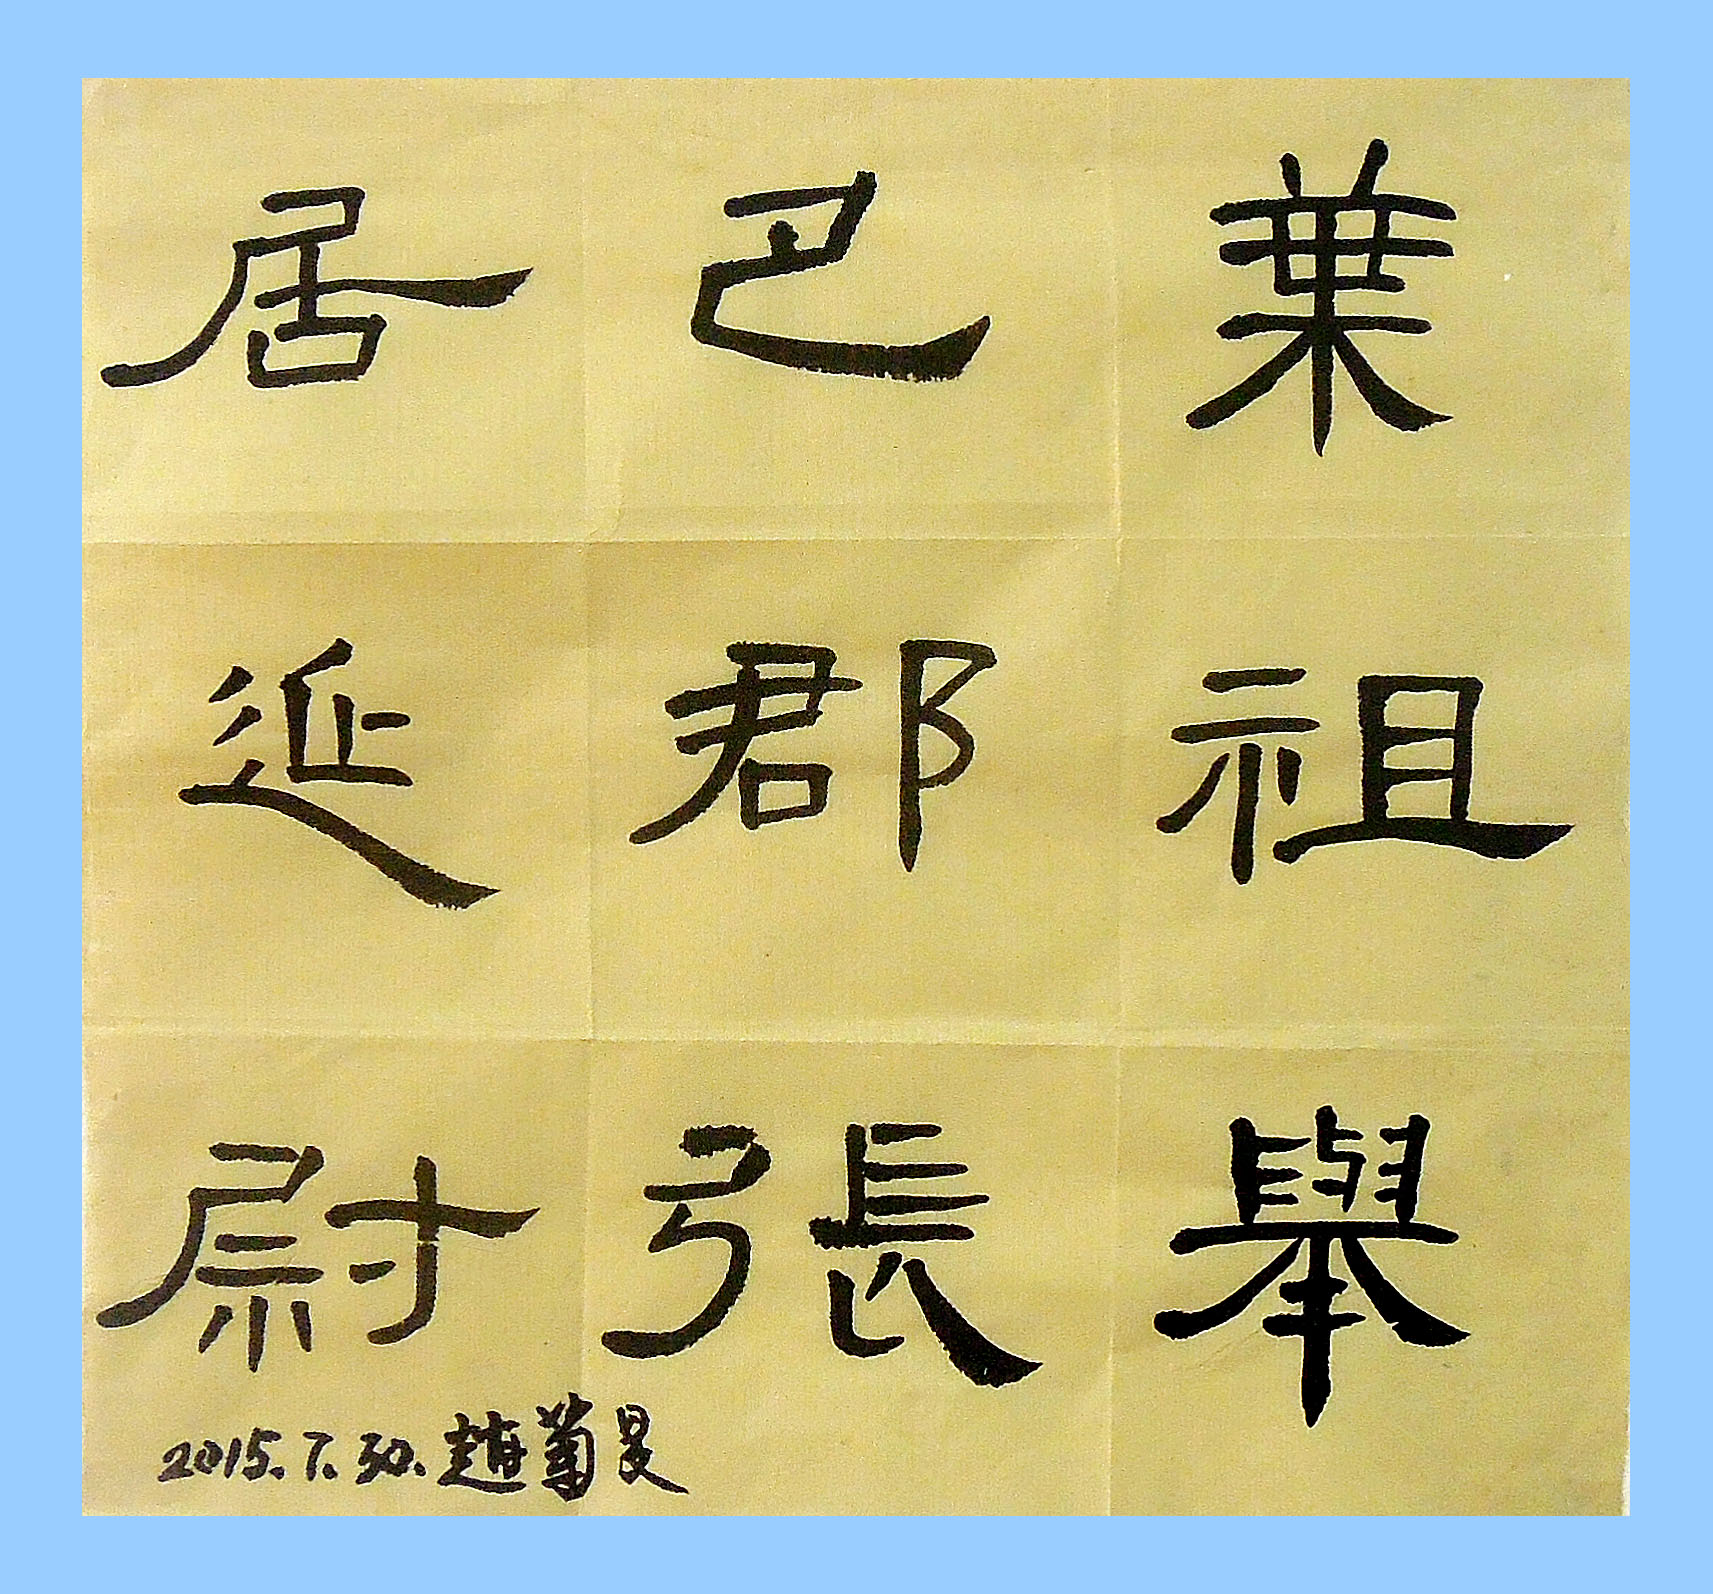 葉祖舉
巴郡張
居延尉
2015.7.30.趙菊